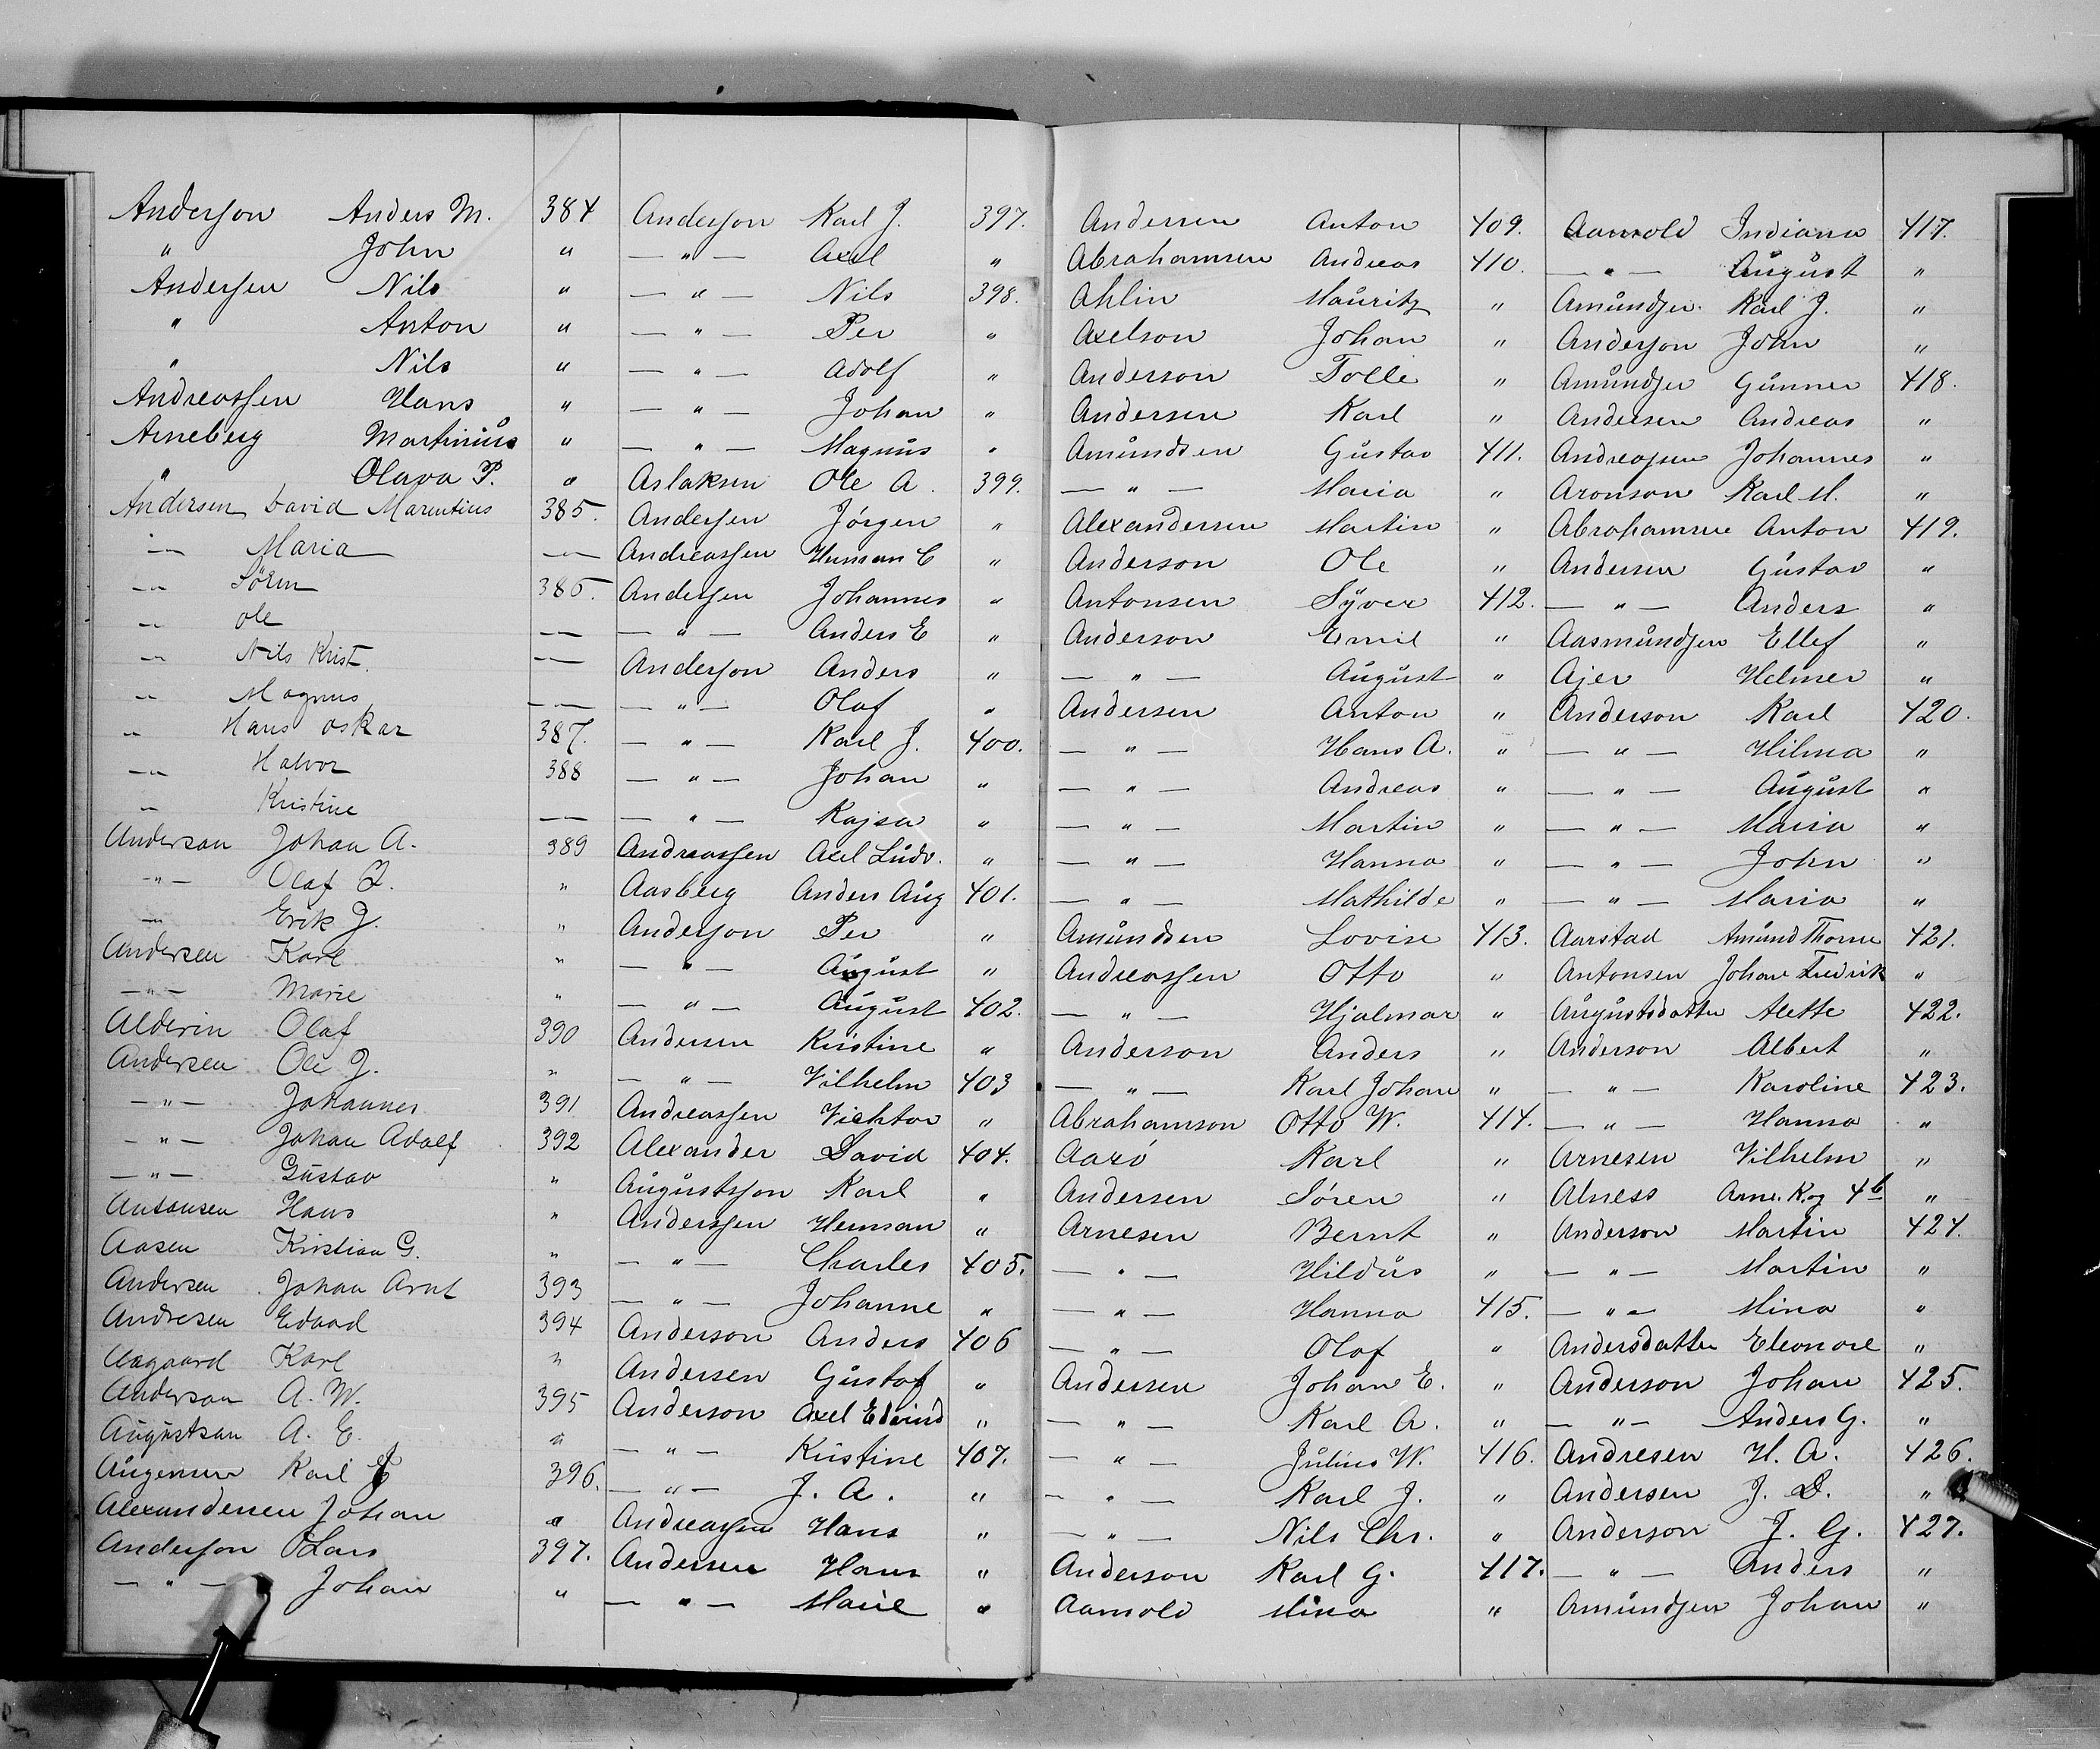 Anderson Anders M. 384
" John "
Andersen Nils "
" Anton "
" Nils "
Andreassen Hans "
Arneberg Martinius "
" Olava P. "
Andersen David Marentius 385.
—"— Maria —"—
—"— Sören 386.
—"— Ole —"—
—"— Nils Krist. —"—
—"— Magnus —"—
—"— Hans Oskar 387.
—"— Halvor 388
—"— Kristine —"—
Anderson Johan A. 389
—"— Olaf "
—"— Erik J. "
Andersen Karl "
—"— Marie "
Alderin Olaf 390
Andersen Ole J. "
—"— Johannes 391
—"— Johan Adolf 392
—"— Gustav "
Antonsen Hans "
Aasen Kristian G. "
Andersen Johan Arnt 393
Andresen Edvard 394
Aagaard Karl "
Anderson A. W. 395
Augustson A. E. "
Augensen Karl 396.
Alexandersen Johan "
Anderson Lars 397.
—"— Johan "
Anderson Karl J. 397.
—"— Axel "
—"— Nils 398.
—"— Per "
—"— Adolf "
—"— Johan "
—"— Magnus "
Aslaksen Ole A. 399.
Andersen Jörgen "
Andreassen Herman C "
Andersen Johannes "
—"— Anders E "
Anderson Anders "
—"— Olaf "
—"— Karl J. 400.
—"— Johan "
—"— Kajsa "
Andreassen Axel Ludv. "
Aasberg Anders Aug 401.
Anderson Per "
—"— August "
—"— August 402.
Andersen Kristine "
—"— Vilhelm 403
Andreassen Vicktor "
Alexander David 404.
Augustsson Karl "
Anderssen Herman "
—"— Charles 405.
—"— Johanne "
Anderson Anders 406
Andersen Gustaf "
Anderson Axel Edvind "
—"— Kristine 407.
—"— J. A. "
Andreassen Hans "
Andersen Hans "
—"— Marie "
Andersen Anton 409.
Abrahamsen Andreas 410.
Ahlin Mauritz "
Axelson Johan "
Anderson Tolle "
Andersen Karl "
Amundsen Gustav 411.
—"— Maria "
Alexandersen Martin "
Anderson Ole "
Antonsen Syver 412.
Anderson Emil "
—"— August "
Andersen Anton "
—"— Hans A. "
—"— Andreas "
—"— Martin "
—"— Hanna "
—"— Mathilde "
Amundsen Lovise 413.
Andreassen Otto "
—"— Hjalmar "
Anderson Anders "
—"— Karl Johan "
Abrahamson Otto W. 414.
Aarö Karl "
Andersen Sören "
Arnesen Bernt "
—"— Hildus "
—"— Hanna 415.
—"— Olaf "
Andersen Johan E. "
—"— Karl A. "
—"— Julius W. 416.
—"— Karl J. "
—"— Nils Chr. "
Anderson Karl G. 417.
Aamold Mina "
Aamold Indiana 417.
—"— August "
Amundsen Karl J. "
Anderson John "
Amundsen Gunner 418.
Andersen Andreas "
Andreassen Johannes "
Aronson Karl M. "
Abrahamsen Anton 419.
Andersen Gustav "
—"— Anders "
Aasmundsen Ellef "
Ajer Helmer "
Anderson Karl 420.
—"— Hilma "
—"— August "
—"— Maria "
—"— John "
—"— Maria "
Aarstad Amund Thorne 421.
Antonsen Johan Fredrik "
Augustsdatter Alette 422.
Anderson Albert "
—"— Karoline 423.
—"— Hanna "
Arnesen Vilhelm "
Alness Arne. K. og 4 b "
Anderson Martin 424.
—"— Martin "
—"— Mina "
Andersdatter Eleonore "
Anderson Johan 425.
—"— Anders G. "
Andresen H. A. 426.
Andersen J. D. "
Anderson J. G. 427.
—"— Anders "
Amundsen Johan "